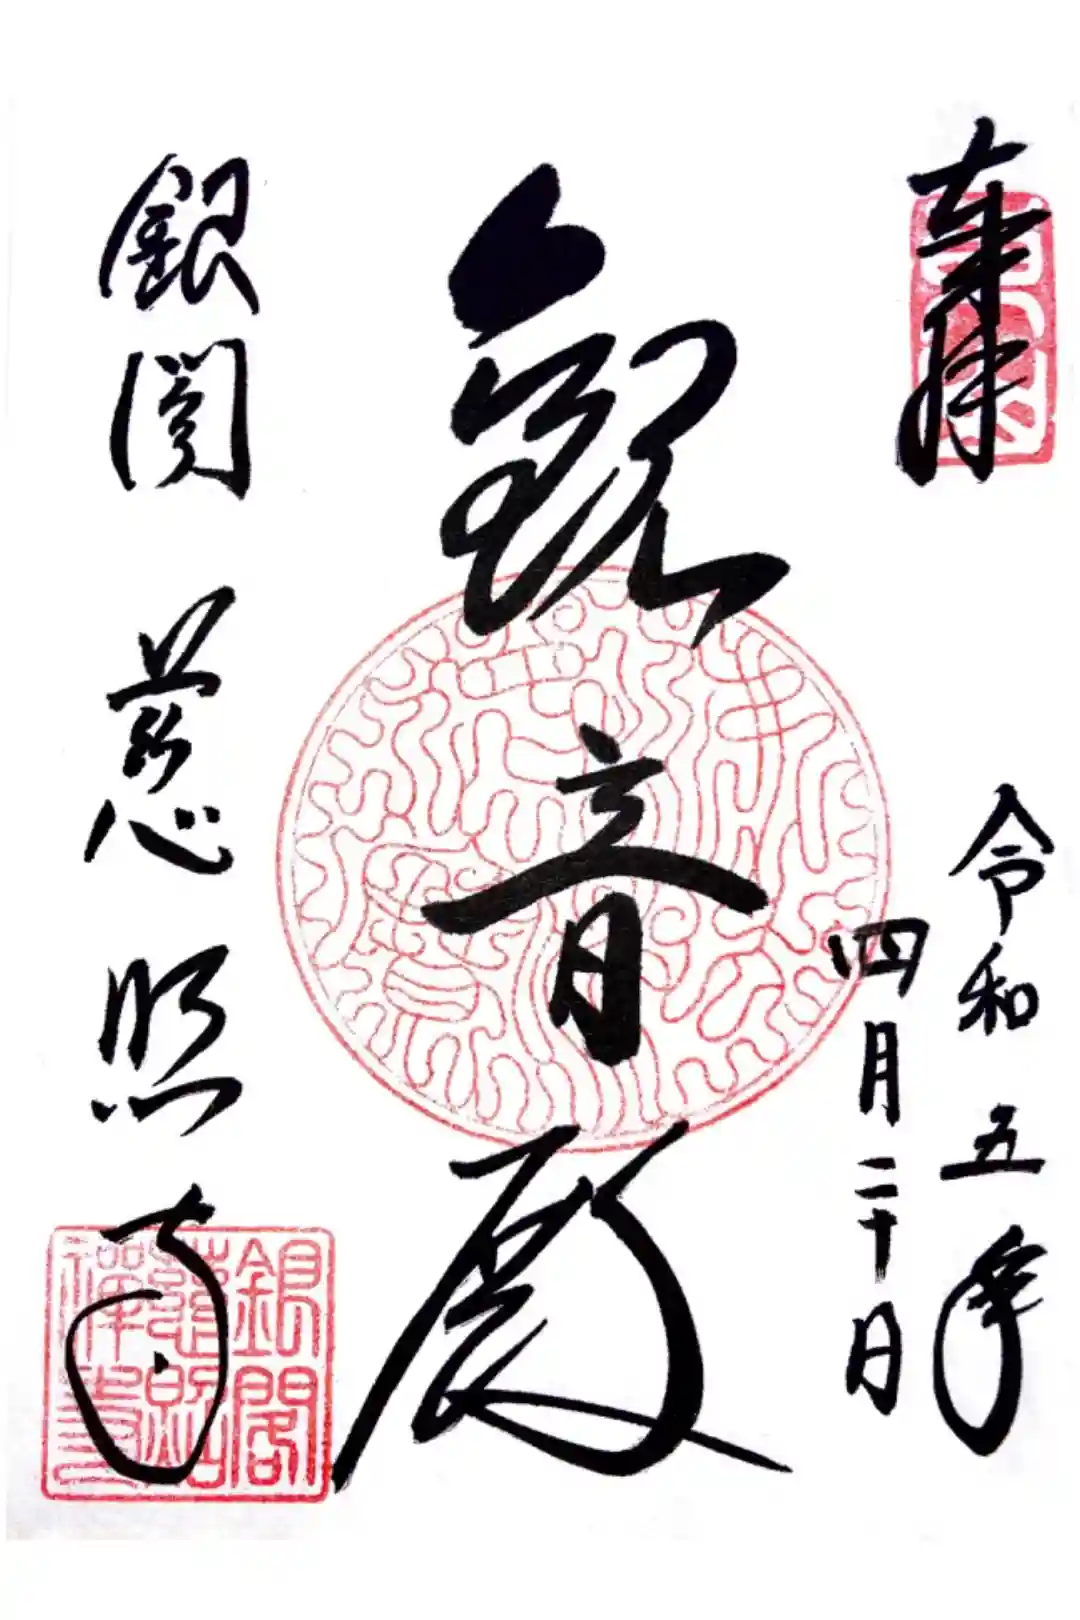 奉拝
令和五年
四月二十日
観音殿
銀閣 慈照寺
銀閣
慈照
禅寺